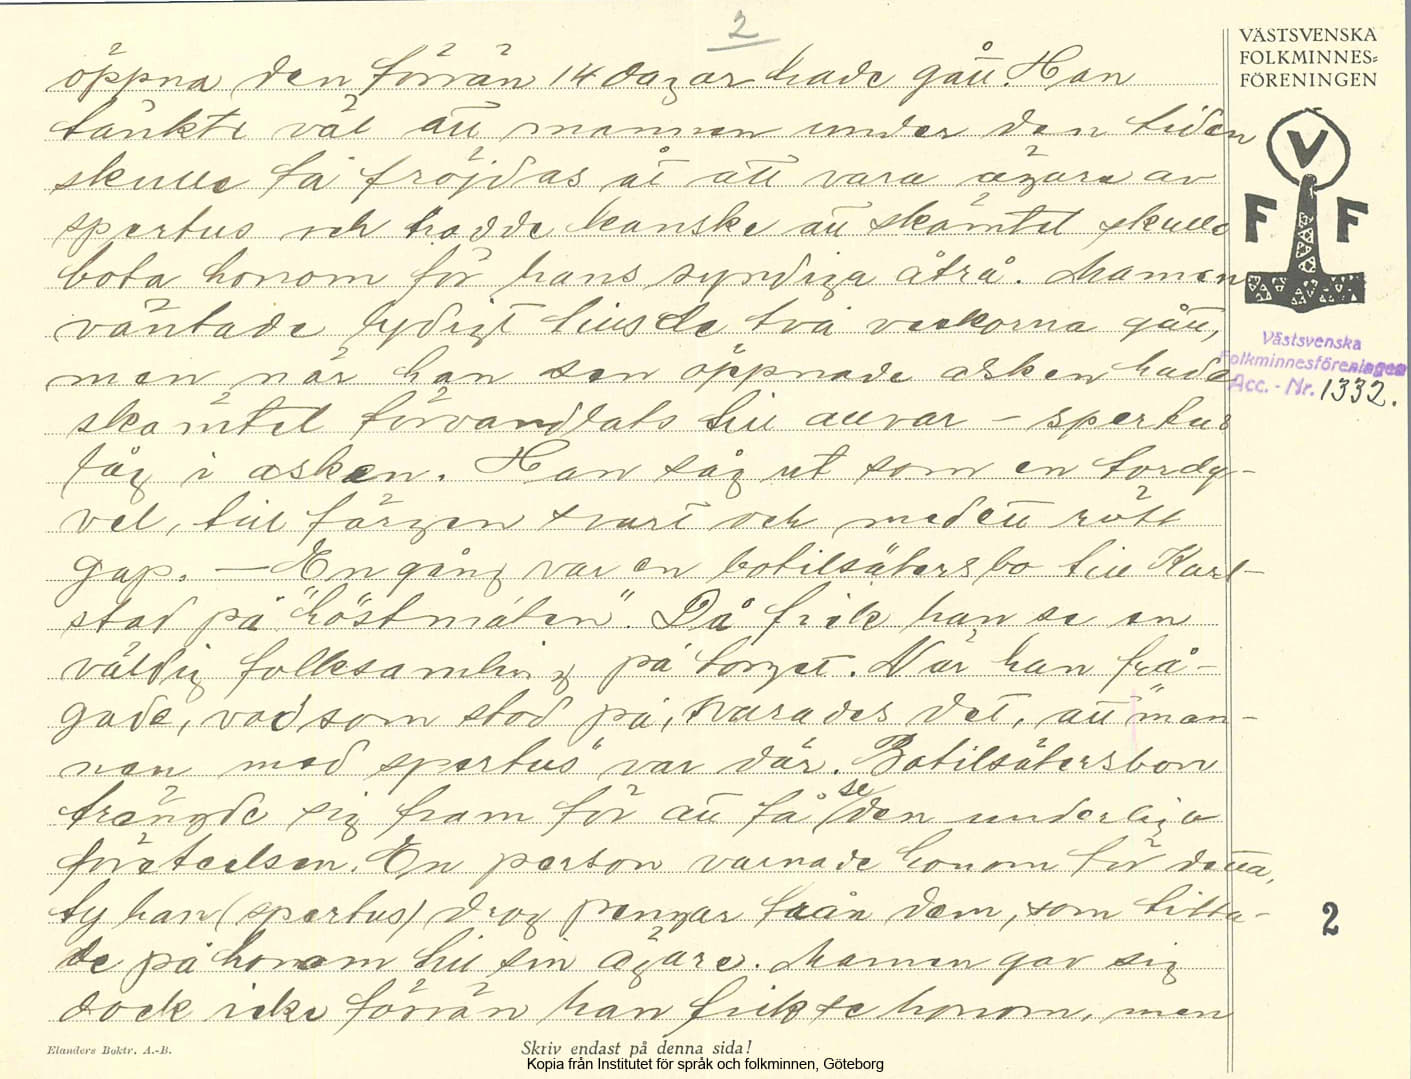 2
VÄSTSVENSKA
FOLKMINNES-
FÖRENINGEN
öppna den förrän 14 dagar hade gått. Han
tänkte väl att mannen under den tiden
skulle få fröjdas åt att vara ägare av
spertus och trodde kanske att skämtet skulle
bota honom för hans syndiga åtrå. Mannen
väntade lydigt tills de två veckorna gått,
men när han sen öppnade asken hade
skämtet förvandlats till allvar – spertus
låg i asken. Han såg ut som en tordy-
vel, till färgen svart och med ett rött
gap. — En gång var en botilsätersbo till Karl-
stad på "höstmäten". Då fick han se en
väldig folksamling på torget. När han frå-
gade, vad som stod på, svarades det, att "man-
nen med spertus" var där. Botilsätersbon
trängde sig fram för att få se den underliga
företeelsen. En person varnade honom för detta,
ty han (spertus) drog pengar från dem, som titta-
de på honom till sin ägare. Mannen gav sig
dock icke förrän han fick se honom, men
V
F F
Västsvenska
Folkminnesföreningen
Acc. - Nr. 1332.
2
Elanders Boktr. A.-B.
Skriv endast på denna sida!
Kopia från Institutet för språk och folkminnen, Göteborg